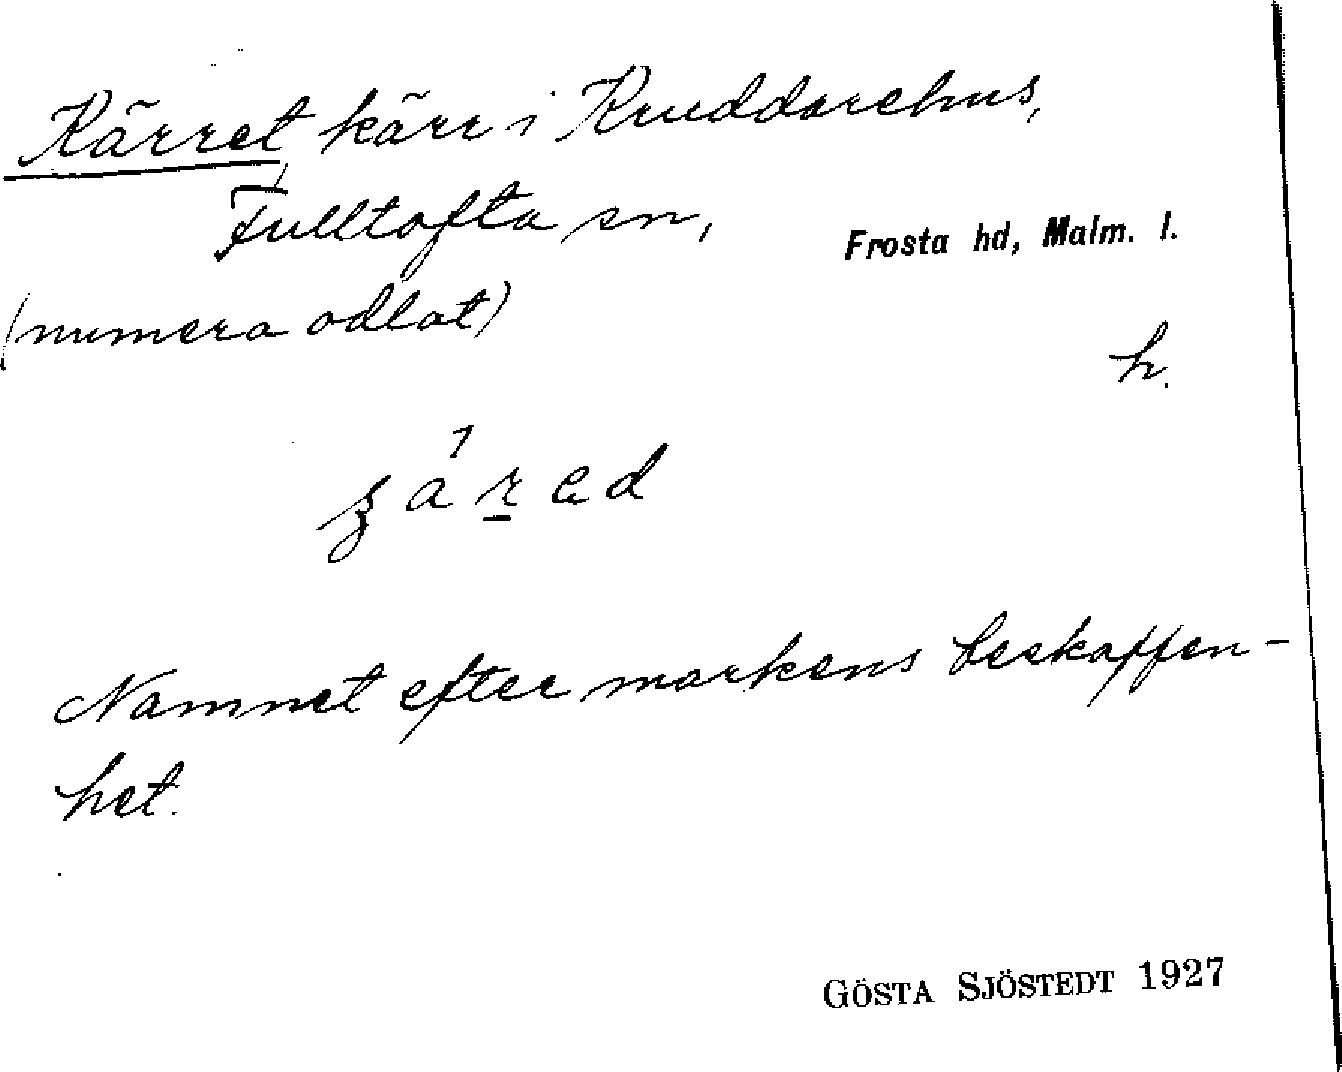 Kärret, kärr i Kruddarehus,
Fulltofta sn, Frosta hd, Malm. l.
(numera odlat)
h.
Namnet efter markens beskaffen-
het.
GÖSTA SJÖSTEDT 1927